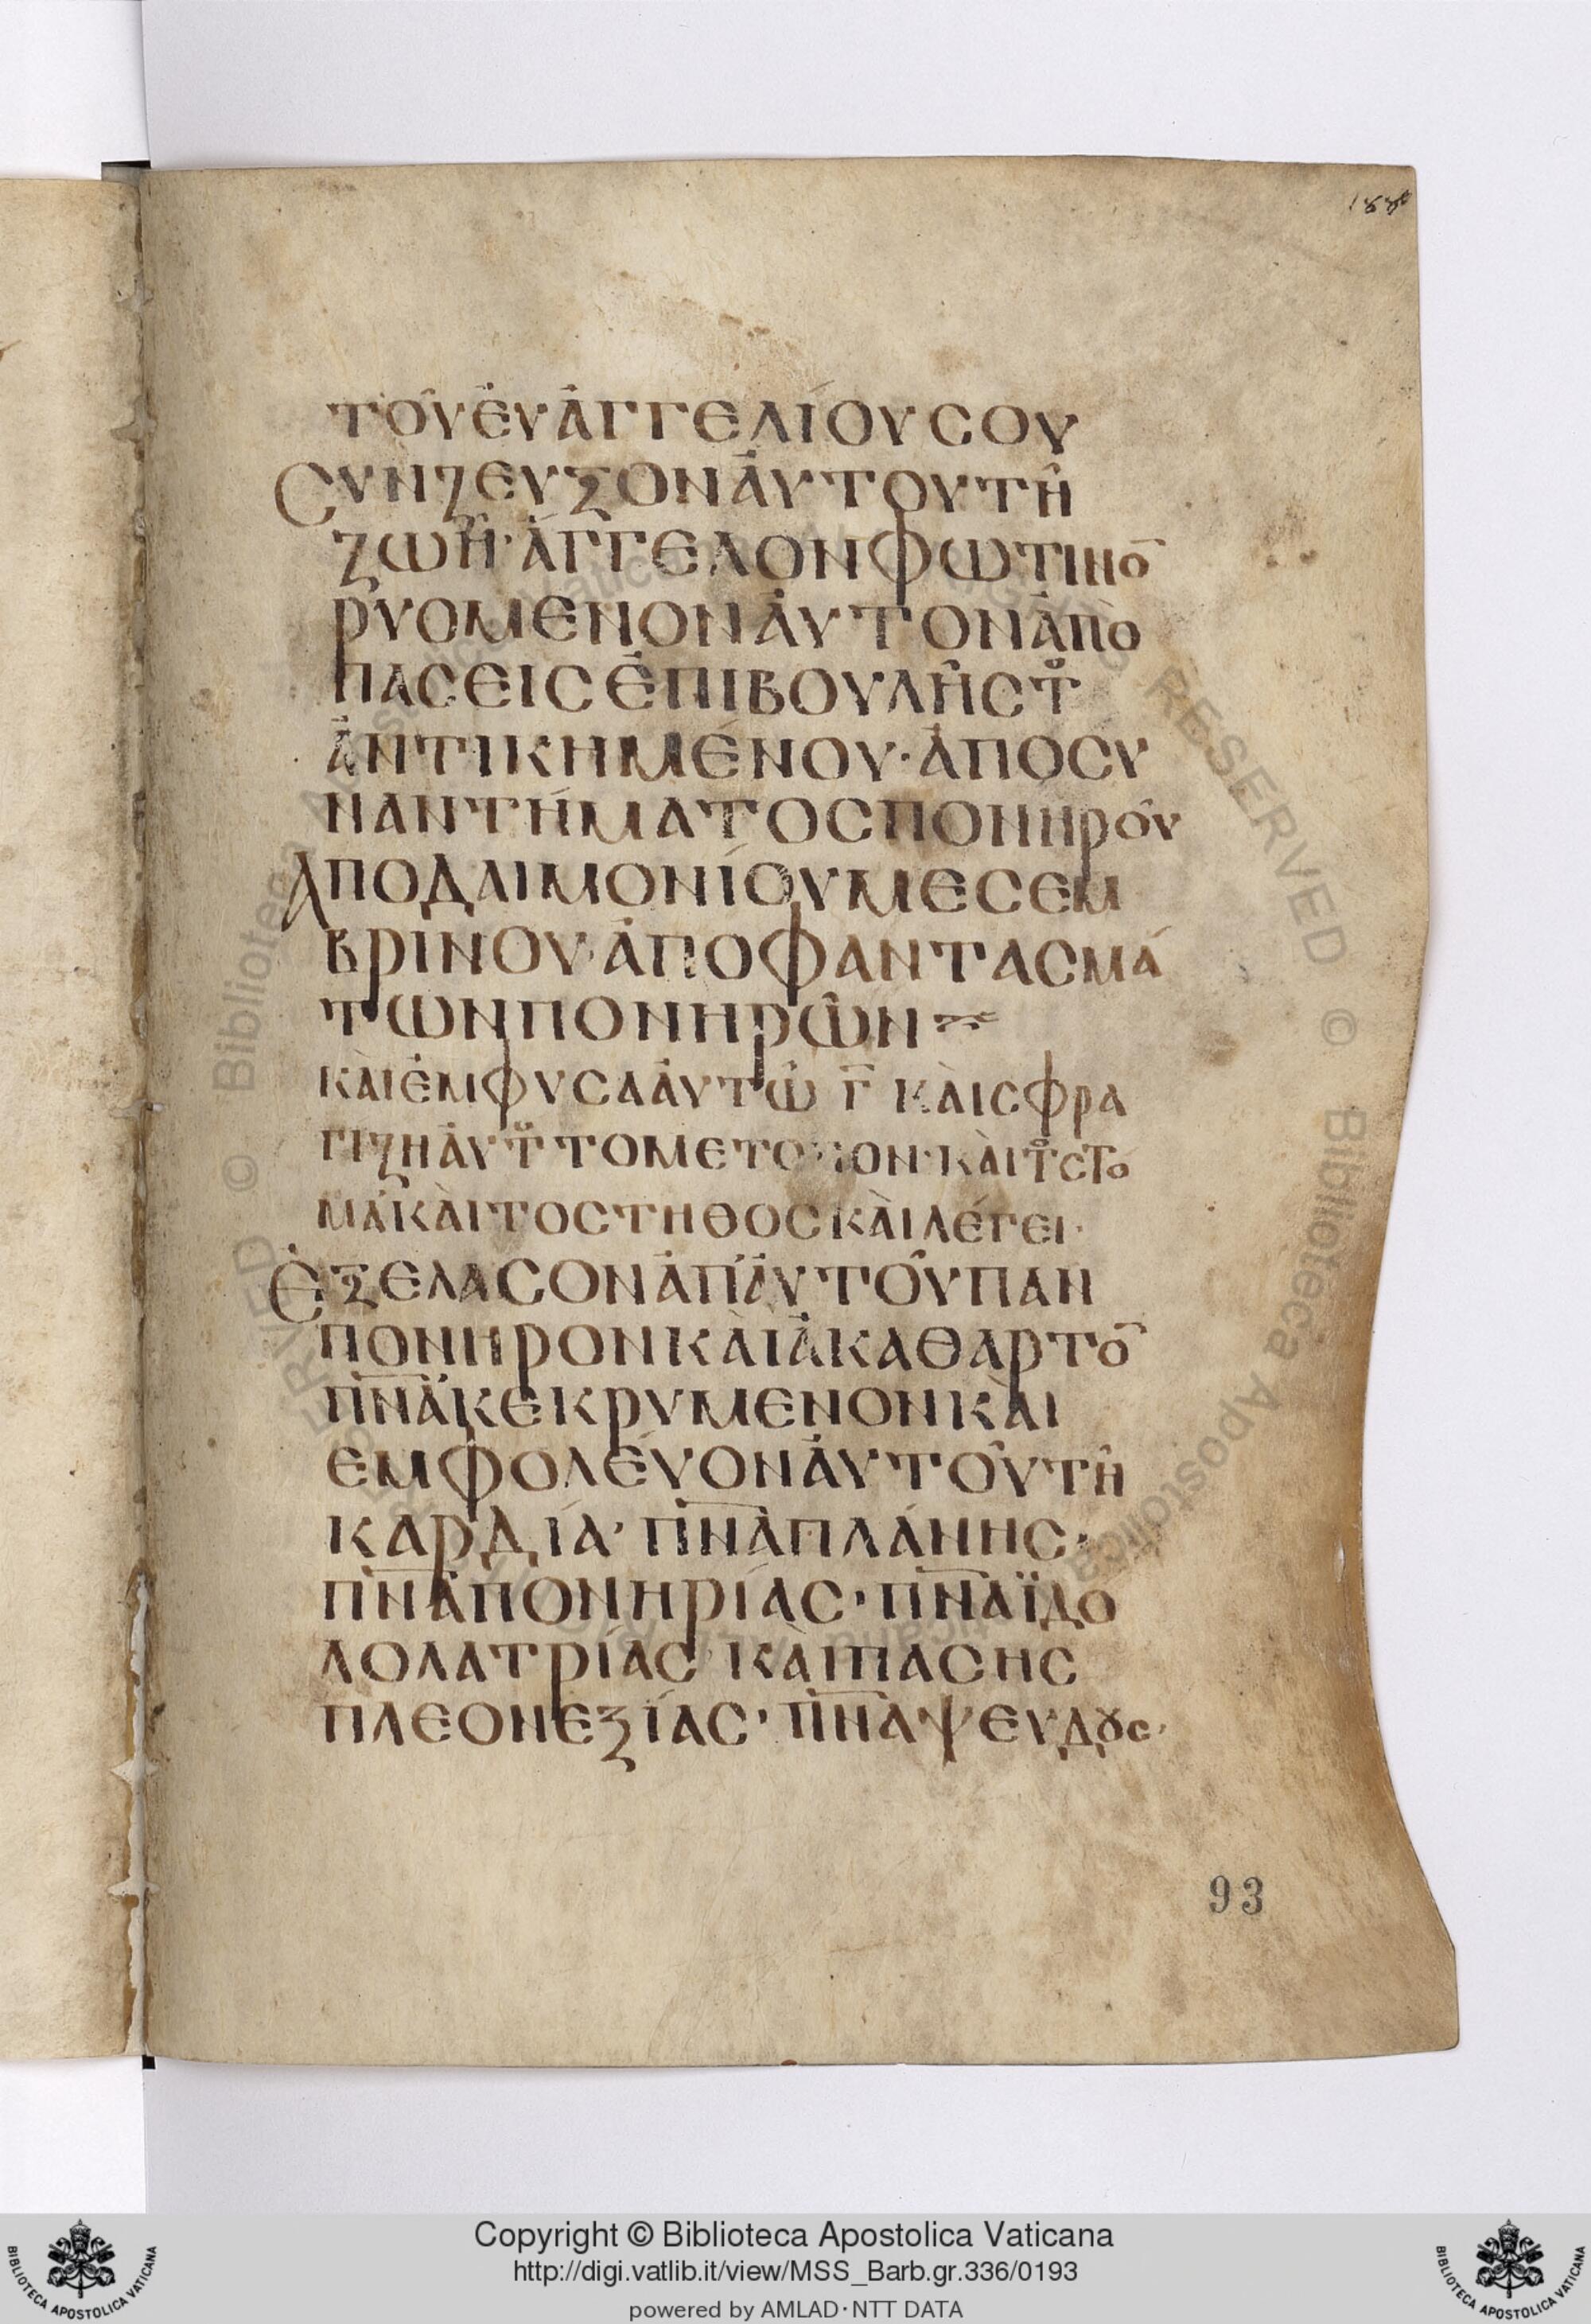 188
ΤΟΥ͂ἘΥἈΓΓΕΛΊΟΥΣΟΥ
ϹΥΝΖΕΥΞΟΝἈΥΤΟΥΤΗ͂
ΖΩΗ͂·ἈΓΓΕΛΟΝΦΩΤΙΝΟ̅
ΡΥΟΜΕΝΟΝἈΥΤΟΝἈΠῸ
ΠΑϹΕΙϹἘΠΙΒΟΥΛΗ͂ϹΤ
ἈΝΤΙΚΗΜΈΝΟΥ·ἈΠΟϹΥ
ΝΑΝΤΉΜΑΤΟϹΠΟΝΗΡΟΥ͂
ΑΠΟΔΑΙΜΟΝΊΟΥΜΕϹΕΜ
ΒΡΙΝΟΥ·ἈΠΟΦΑΝΤΑϹΜΆ
ΤΩΝΠΟΝΗΡΩ͂Ν
ΚᾺΙἘΜΦΥϹΑἈΥΤΩ͂ Γ̅ ΚᾺΙϹΦΡΑ
ΓΙΖΗἈΥΤ ΤΟΜΕΤΟΠΟΝ·ΚᾺΙΤϹΤΟ
ΜΆΚᾺΙΤΟϹΤΗΘΟϹΚᾺΙΛΈΓΕΙ·
ἘΞΕΛΑϹΟΝἈΠἈΥΤΟΥ͂ΠΑΝ
ΠΟΝΗΡΟΝΚᾺΙἈΚΑΘΑΡΤΟ̅
Π̅Ν̅Α̅ΚΕΚΡΥΜΕΝΟΝΚᾺΙ
ΕΜΦΟΛΈΥΟΝἈΥΤΟΥ͂ΤΗ͂
ΚΑΡΔΊΑ·Π̅Ν̅Α̅ΠΛΆΝΗϹ·
Π̅Ν̅Α̅ΠΟΝΗΡΊΑϹ·Π̅Ν̅Α̅ΪΔΟ
ΛΟΛΑΤΡΊΑϹ ΚᾺΙΠΑϹΗϹ
ΠΛΕΟΝΕΞΊΑϹ·Π̅Ν̅Α̅ΨΕΥΔȣϹ·
93
Copyright © Biblioteca Apostolica Vaticana
http://digi.vatlib.it/view/MSS_Barb.gr.336/0193
powered by AMLAD·NTT DATA
BIBLIOTECA APOSTOLICA VATICANA
BIBLIOTECA APOSTOLICA VATICANA